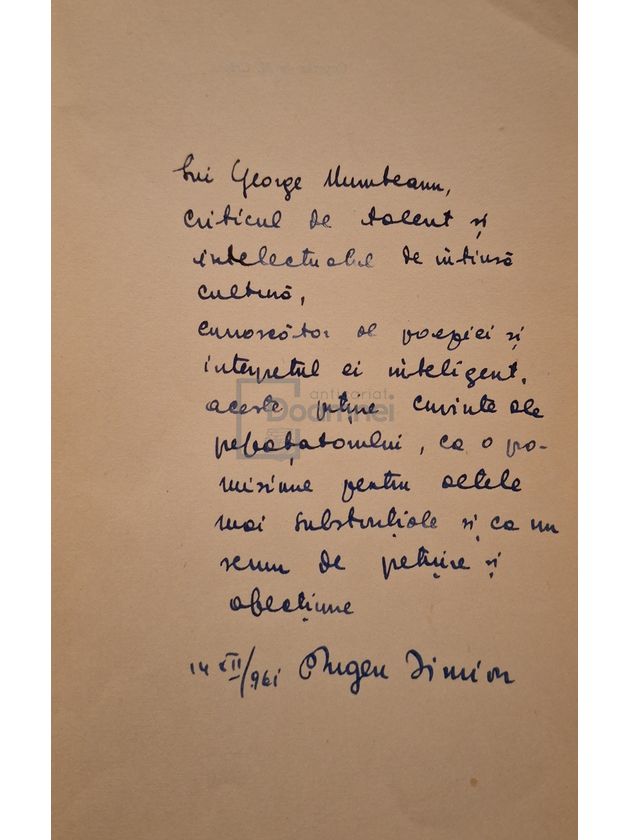 Lui George Munteanu,
criticul de talent și
intelectualul de întinsă
cultură,
cunoscător al poeziei și
interpretul ei inteligent,
aceste puține cuvinte ale
prefațatorului, ca o pro-
misiune pentru altele
mai substanțiale și ca un
semn de prețuire și
afecțiune
14 XII/961 Eugen Simion
anticariat
Doamnei